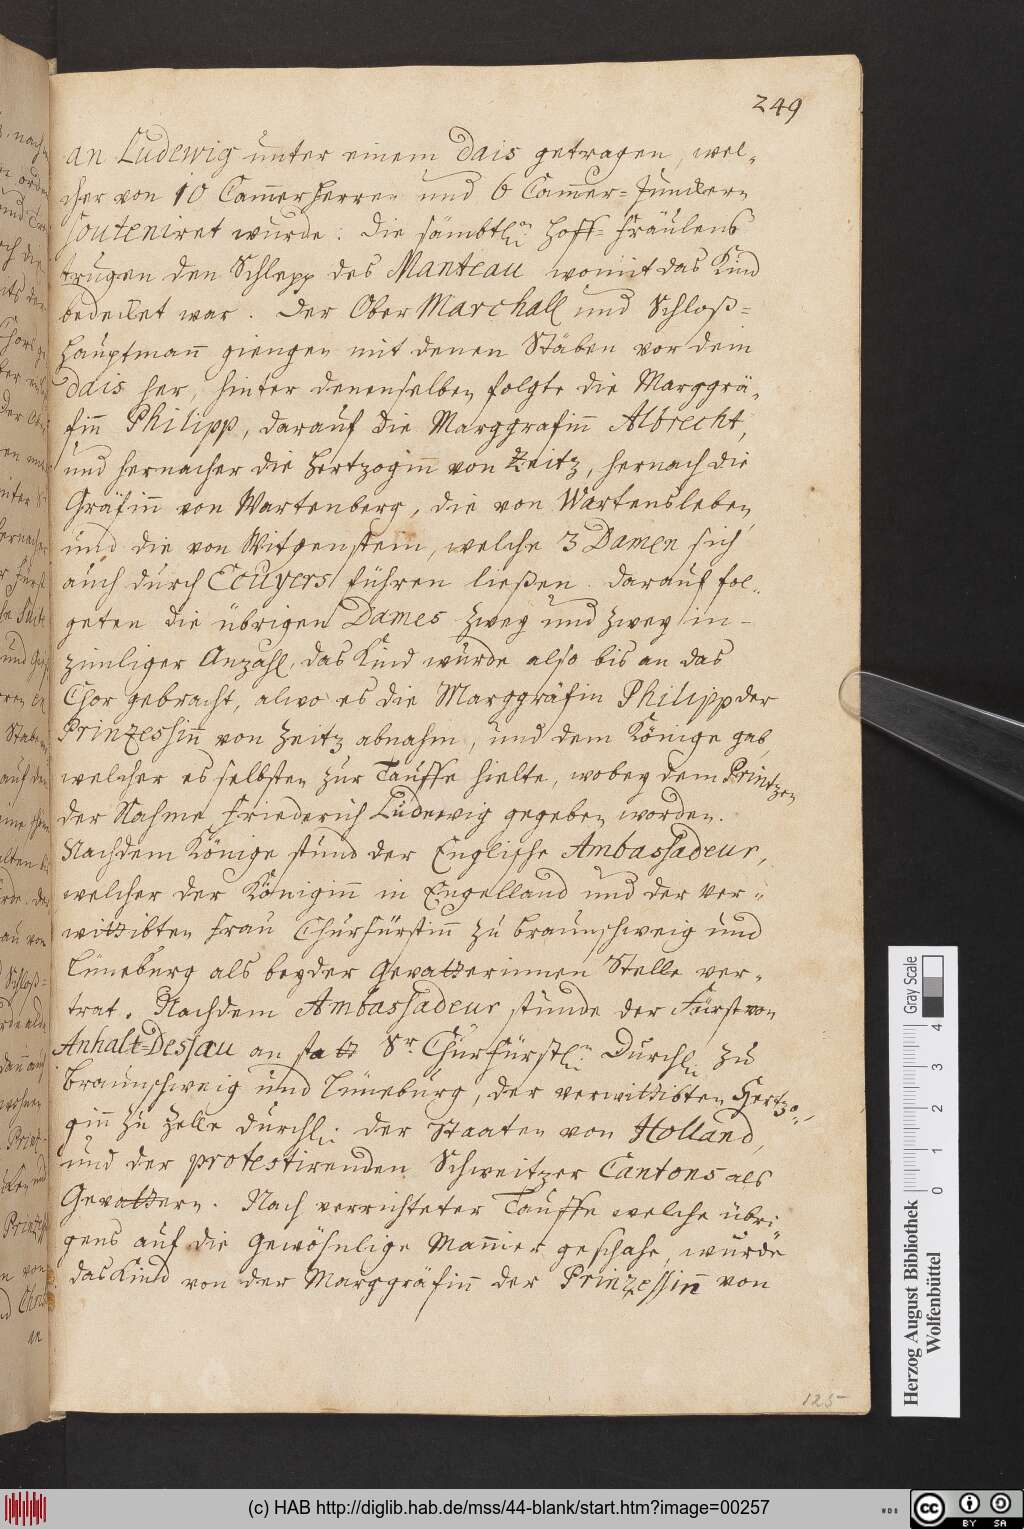 249
an Ludewig unter einem Dais getragen, wel-
cher von 10 Cam̄erHerren und 6 Cam̄er-Junckern
souteniret wurde. Die sämbtl. Hoff-Fräulens
trugen den Schlepp des Manteau womit das Kind
bedecket war. Der Ober Marchall und Schloß-
Hauptmann giengen mit denen Stäben vor dem
Dais her, hinter denenselben folgte die Marggrä-
finn Philipp, darauf die Marggrafinn Albrecht,
und hernacher die Hertzoginn von Zeitz, hernach die
Gräfinn von Wartenberg, die von Wartensleben
und die von Witgenstein, welche 3 Damen sich
auch durch Ecuyers führen ließen. Darauf fol-
geten die übrigen Dames zwey und zwey in-
zimliger Anzahl, das Kind wurde also bis an das
Chor gebracht, alwo es die Marggräfin Philipp der
Prinzessinn von Zeitz abnahm, und dem Könige gab
welcher es selbsten zur Tauffe hielte, wobey dem Printzen
der Nahme Friederich Ludewig gegeben worden.
Nachdem Könige stund der Englische Ambassadeur,
welcher der Königinn in Engelland und der ver-
wittibten Frau Churfürstinn zu Braunschweig und
Lüneburg als beyder Gevatterinnen Stelle ver-
trat. Nachdem Ambassadeur stunde der Fürst von
Anhalt-Dessau an statt Sr. Churfürstl. Durchl. zu
Braunschweig und Lüneburg, der verwittibten Hertzo-
ginn zu Zelle Durchl. der Staaten von Holland,
und der protestirenden Schweitzer Cantons als
Gevattern. Nach verrichteter Tauffe welche übri-
gens auf die Gewöhnlige Mannier geschahe, wurde
das Kind von der Marggräfinn der Prinzessinn von
125
Herzog August Bibliothek
Wolfenbüttel
Gray Scale
0 1 2 3 4
(c) HAB http://diglib.hab.de/mss/44-blank/start.htm?image=00257
WDB
cc
BY SA